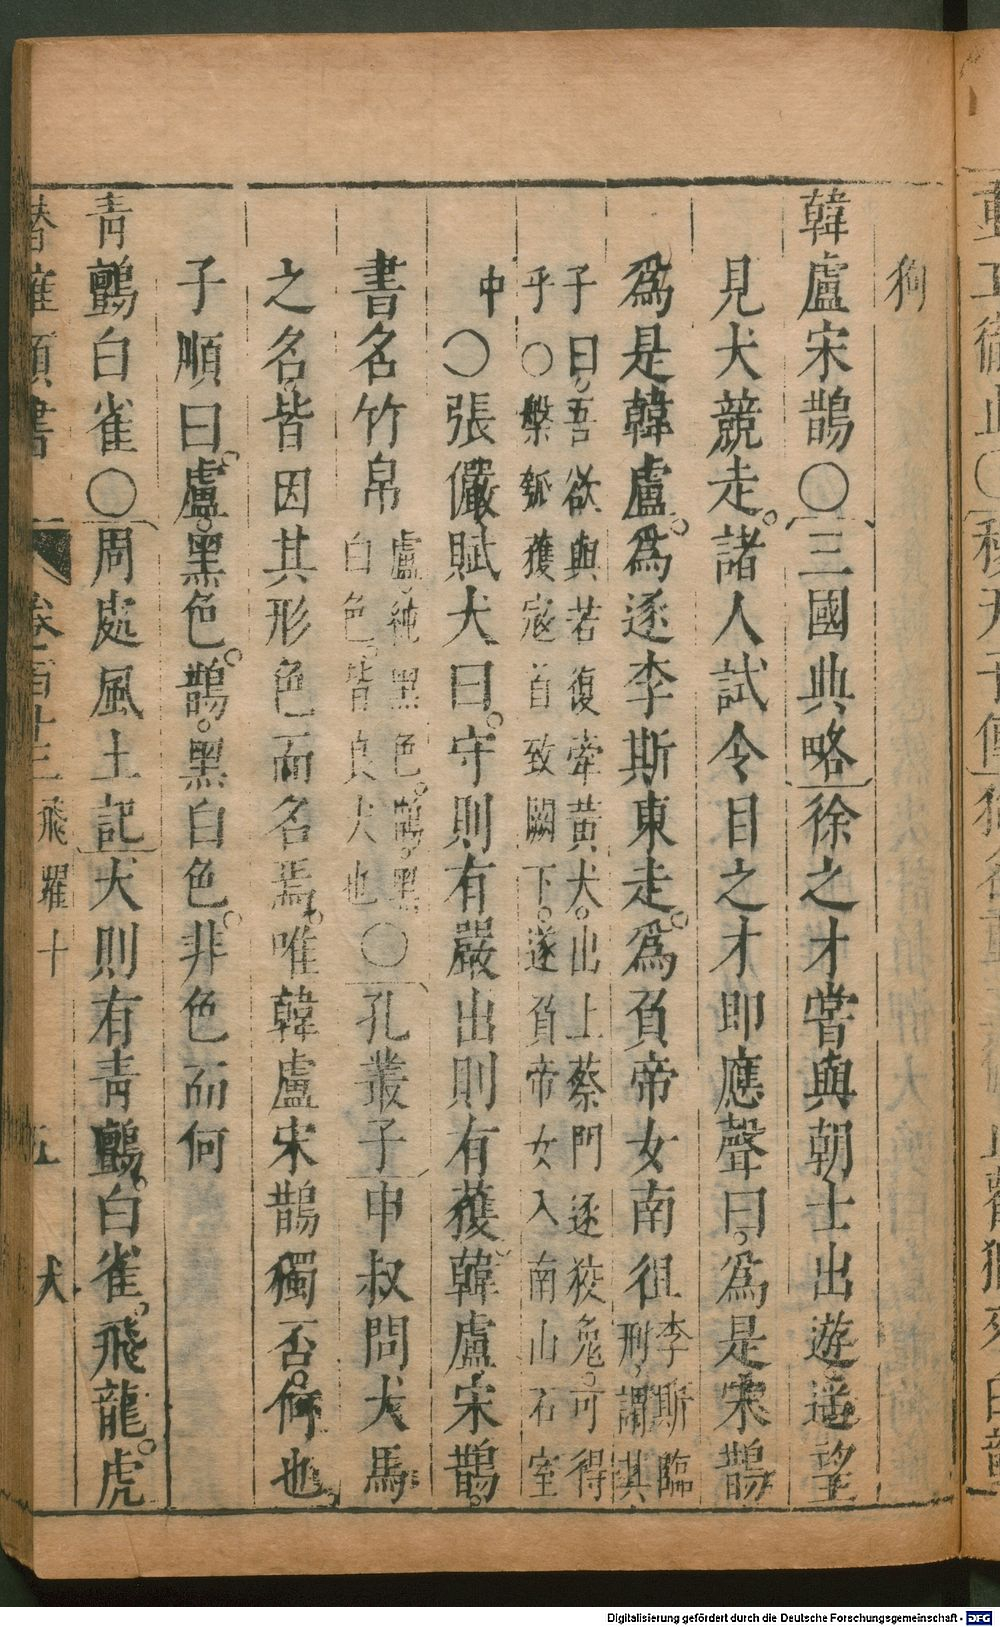 狗
韓盧宋鵲○三國典略徐之才嘗與朝士出遊遥望
見犬競走。諸人試令目之才即應聲曰。爲是宋鵲
爲是韓盧。爲逐李斯東走。爲負帝女南徂李斯臨刑謂其
子曰。吾欲與若復牽黃犬。出上蔡門逐狡兔。可得
乎○槃瓠獲宼首致闕下。遂負帝女入南山石室
中○張儼賦犬曰。守則有嚴出則有獲韓盧宋鵲。
書名竹帛盧。純黑色。鵲。黑白色。皆良犬也○孔叢子申叔問犬馬
之名。皆因其形色而名焉。唯韓盧宋鵲獨否。何也。
子順曰。盧。黑色。鵲。黑白色。非色而何
青鸇白雀○周處風土記犬則有青鸇。白雀。飛龍。虎
潛確類書 卷一百十三 飛躍十 五 犬
Digitalisierung gefördert durch die Deutsche Forschungsgemeinschaft - DFG